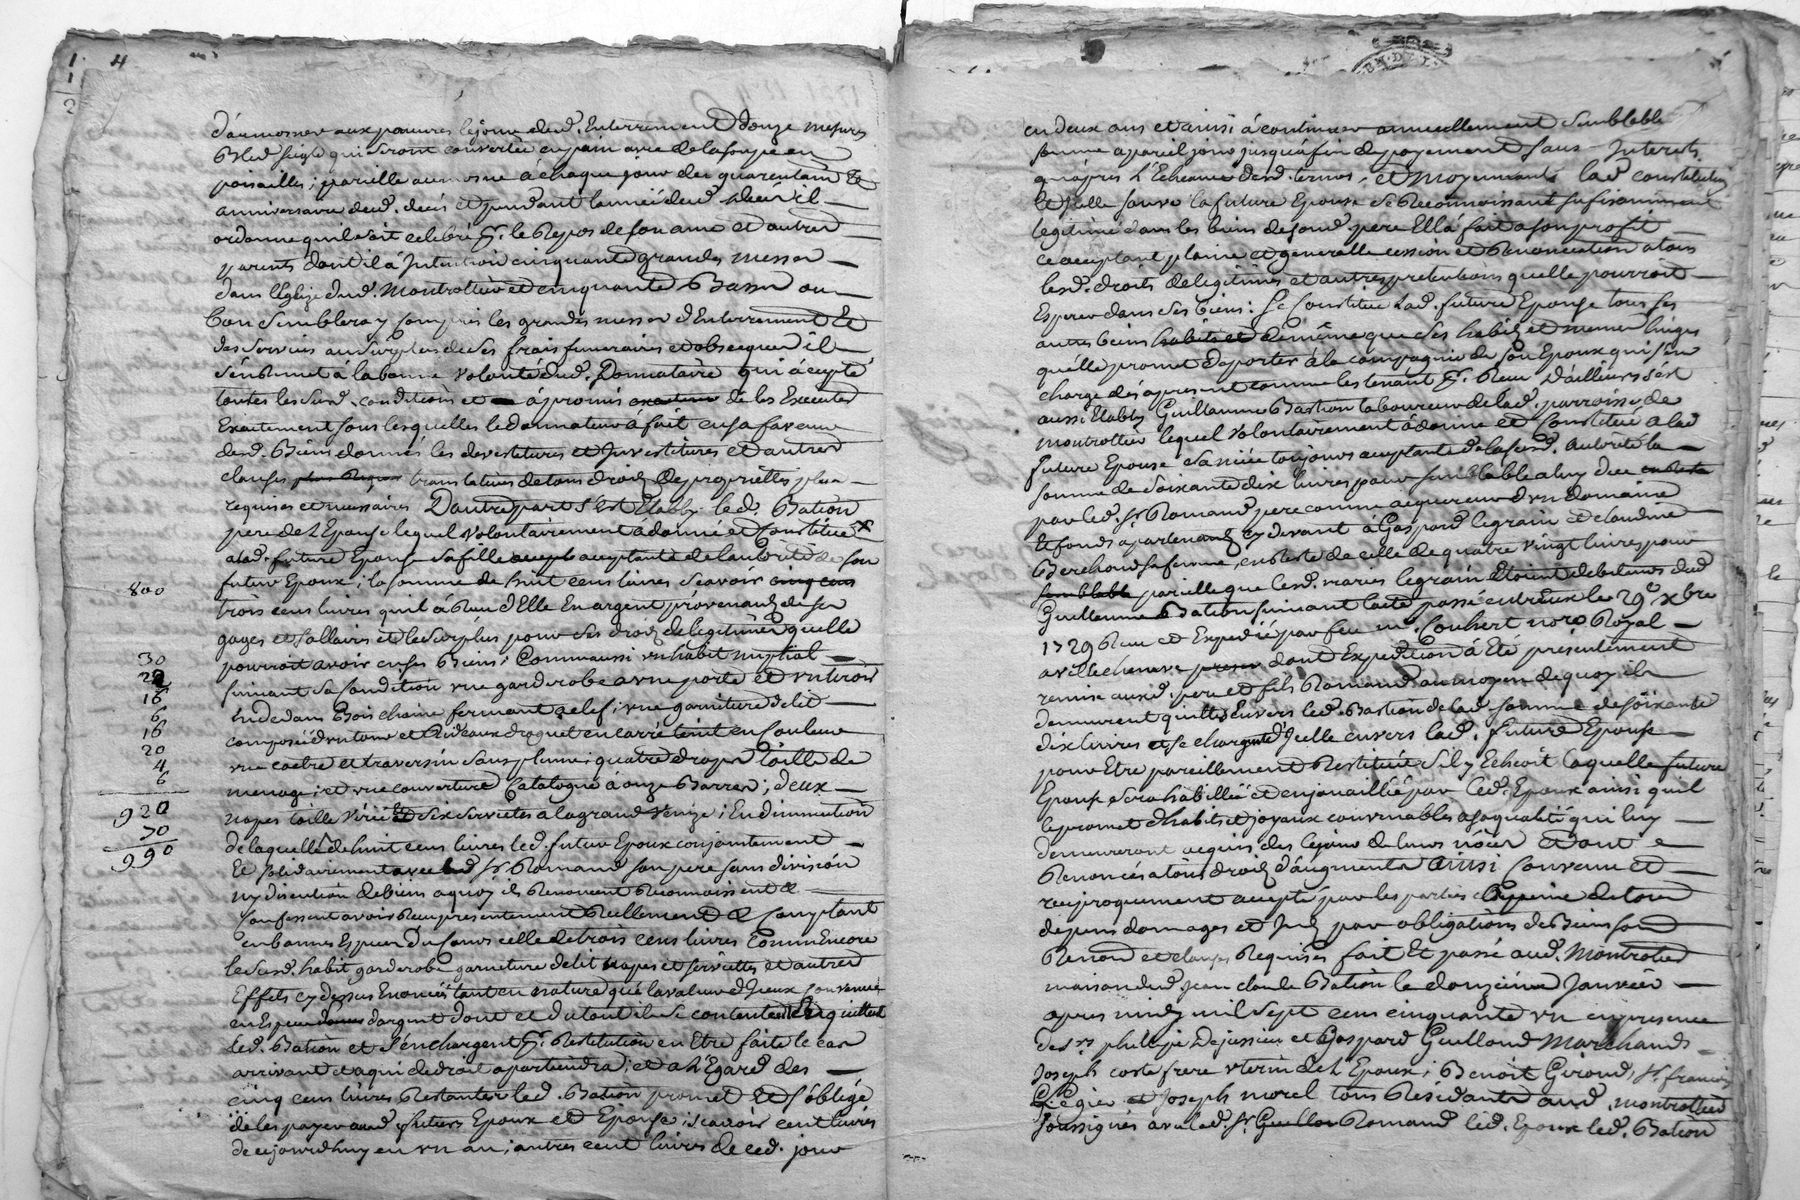 4
d'aumosner aux pauvres le jour dud. Enterrement douze mesures
Bled seigle qui seront converties en pain avec de la soupe en
poisailles; pareille aumosne à chaque jour des quarantain et
anniversaire dud. decés et pendant l'année dud. decés il
ordonne qu'il soit celebré pr. le Repos de son ame et autres
parents dont il à Intention cinquante grandes messes
dans l'Eglize dud. Montrottier et cinquante Basses ou
bon semblera y compris les grandes messes d'Enterrement et
des services au surplus de ses frais funeraires et obseques il
s'en remet à la bonne volonté dud. Donnataire qui à accepté
toutes les susd. conditions et à promis de les Executer
Exactement sous lesquelles le donnateur à fait en sa faveur
desd. Biens donnés les devestitures et Investitures et autres
clauses translatives de tous droits de proprietés plus
requises et necessaires D'autre part s'est Etably led. Bation
pere de l'Epouse lequel volontairement à donné et constitué
a lad. future Epouse sa fille acceptante de l'autorité de son
futur Epoux; la somme de huit cens livres scavoir cinq cens
800
trois cens livres qu'il à Reçu d'Elle En argent provenants de ses
gages et sallaires et le surplus pour ses droits de legitimes qu'elle
pourroit avoir en ses Biens; Comm'aussi un habit nuptial
30
suivant sa condition une garderobe a une porte et un tiroir
22
en dedans Bois chaine fermant a clef; une garniture de lit
16
composée d'un tour et Rideaux droguet en carré teint en couleur
6
16
une coetre et traversin sans plume; quatre draps toille de
20
menage; et une couverture Catalogne à onze Barres; deux
4
6
napes toille Virée et six serviettes a la grand Venize; En diminution
920
de laquelle de huit cens livres led. futur Epoux conjointement
70
990
Et solidairement avec led. Sr. Romand son pere sans division
ny discution de biens a quoy ils Renoncent Reconnoissent &
confessent avoir Reçu presentement Reellement & Comptant
en bonnes Especes du cours celle de trois cens livres Comm'Encore
le susd. habit garderobe garniture de lit napes et serviettes et autres
Effets cy dessus Enoncés tant en nature que la valeur d'Iceux convenue
en Especes d'argent dont et du tout ils se contentent Et quittent
led. Bation et s'en chargent pr. Restitution en Etre faite le cas
arrivant et a qui de droit apartiendra; et a l'Egard des
cinq cens livres Restantes led. Bation promet Et s'oblige
de les payer aud. futurs Epoux et Epouse; scavoir cent livres
de ce jourd'huy en un an; autres cent livres de ced. jour
en deux ans et ainsi à continuer annuellement semblable
somme a pareil jour jusqu'à fin de payement sans Interets
qu'aprés l'Echeance desd. termes, et moyennant lad. constitution
legitimé dans les biens de sond. pere Ell'à fait a son profit
ce acceptant plaine et generalle cession et Renonciation a tous
lesd. droits de legitimes et autres pretentions qu'elle pourroit
Esperer dans ses biens: Se constitue lad. future Epouse tous ses
autres biens habits et de même que ses habits et menus linges
qu'elle promet d'aporter à la compagnie de son Epoux qui s'en
charge dés apresent comme les tenant pr. Reçu D'ailleurs s'est
aussi Etably Guillaume Bastion laboureur de lad. parroisse de
montrottier lequel volontairement à donné et constitué a lad.
future Epouse sa niéce toujours acceptante de la susd. autorité la
somme de soixante dix livres pour semblable a luy due
par led. Sr. Romand pere comme acquereur d'un domaine
Et fonds apartenants cy devant a Gaspard legrain et claudine
Berchoux sa femme, en reste de celle de quatre vingt livres pour
semblable pareille que lesd. mariés legrain Etoient debiteurs dud.
Guillaume Bation suivant l'acte passé entr'Eux le 29e Xbre
1729 Reçu et Expedié par feu me. Coubert nore. Royal
a villechenere dont Expedition à Eté presentement
remise auxd. pere et fils Romand au moyen de quoy ils
demeurent quittes Envers led. Bastion de lad. somme de soixante
dix livres et se chargent d'Icelle envers lad. future Epouse
pour Etre pareillement Restituée s'il y Echeoit laquelle future
Epouse sera habillée et enjouaillée par led. Epoux ainsi qu'il
le promet d'habits et joyaux convenables a sa qualité qui luy
demeureront acquis des le jour de leurs nôces
Renoncés a tous droits d'augments Ainsi Convenu et
reciproquement accepté par les parties a peine de tous
depens domages et Int. par obligations de Biens soum.
Renon. et clauses Requises fait Et passé aud. Montrottier
maison dud. jean claude Bation le douzième Janvier
apres midy mil sept cens cinquante un en presence
des srs. philippe Dejussieu et Gaspard Guilloud Marchands
Joseph coste frere uterin de l'Epoux; Benoit Giroud, Sr. francois
Legier et Joseph morel tous Residants aud. montrottier
soussignés avec led. Sr. Romand led. Epoux led. Bation